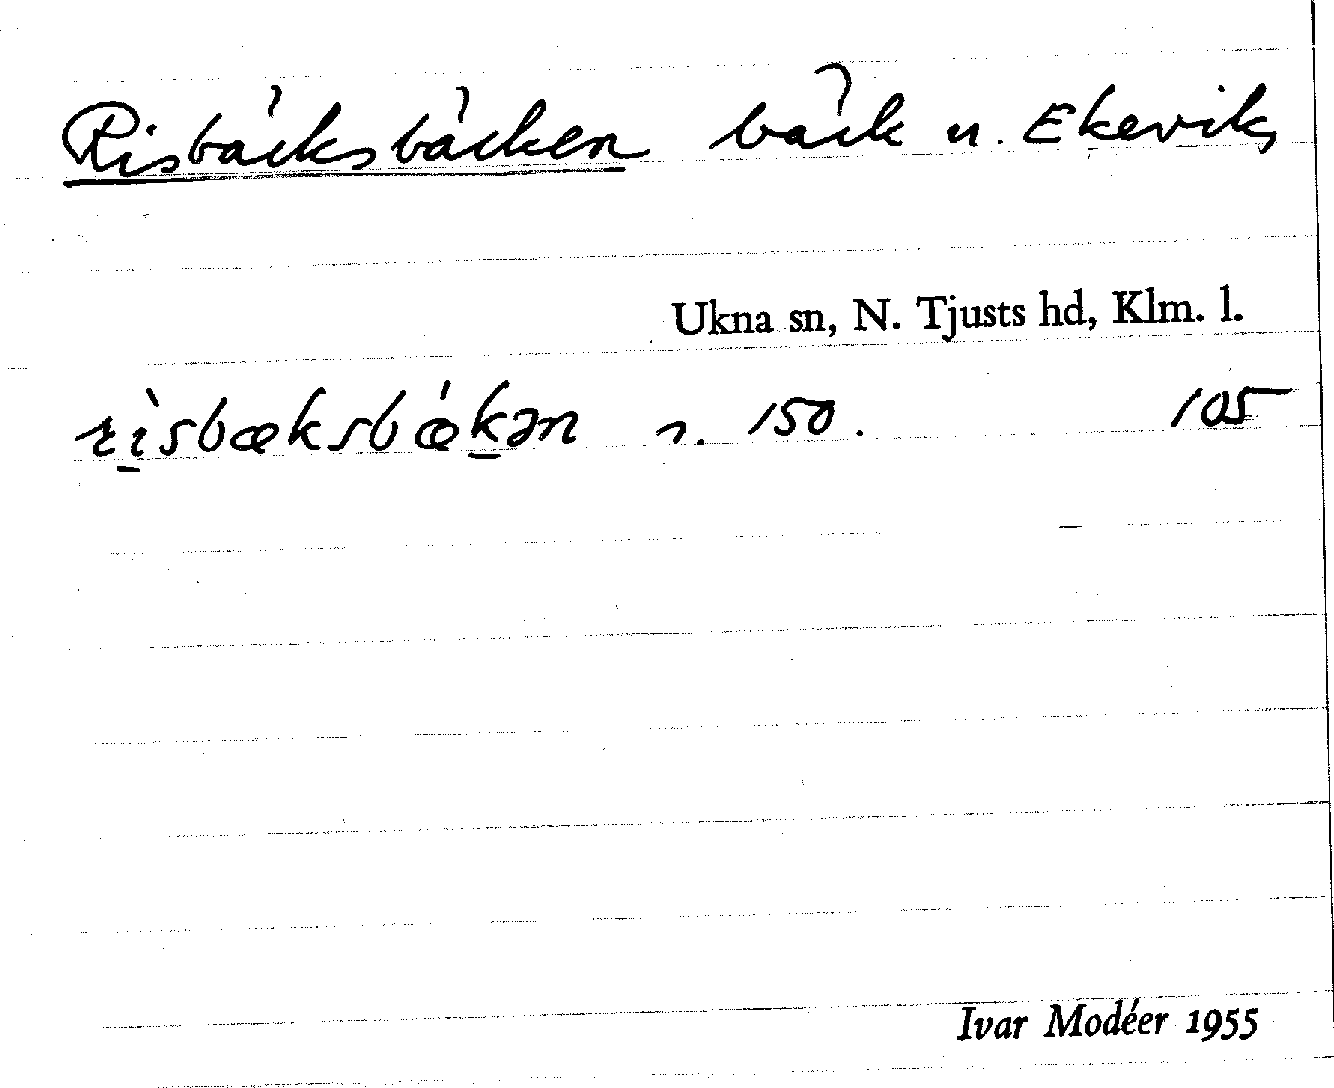 Risbäcksbäcken bäck u. Ekeviks
Ukna sn, N. Tjusts hd, Klm. l.
rìsbæksbǽkən n. 150. 105
Ivar Modéer 1955